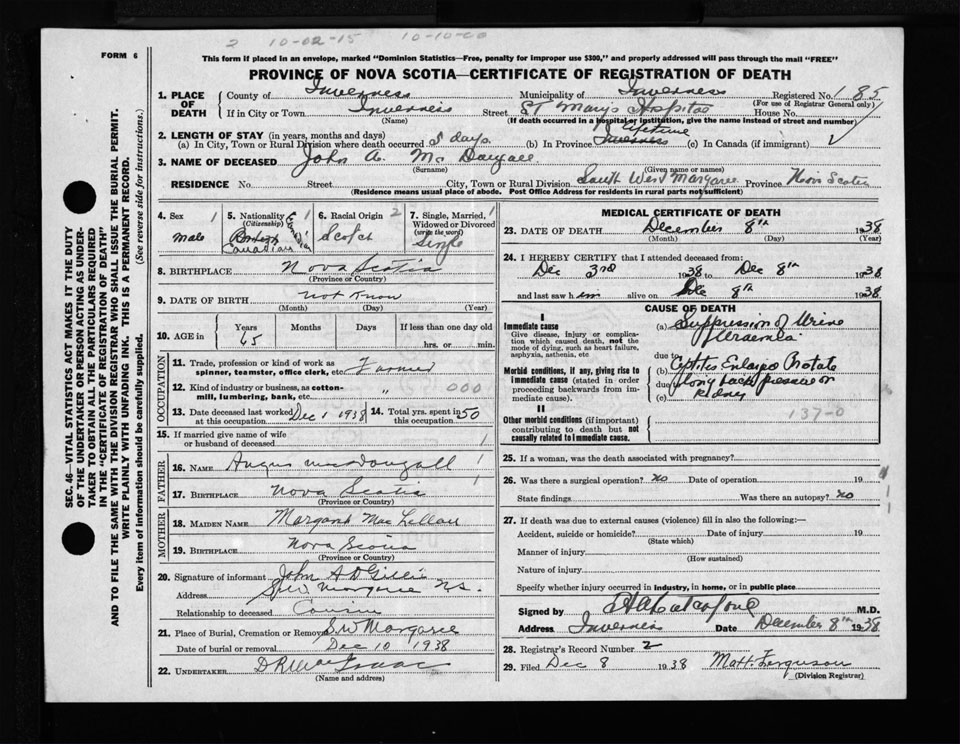 2 10-02-15 10-10-00
FORM 6
This form if placed in an envelope, marked "Dominion Statistics—Free, penalty for improper use $300," and properly addressed will pass through the mail "FREE"
PROVINCE OF NOVA SCOTIA—CERTIFICATE OF REGISTRATION OF DEATH
1. PLACE OF DEATH
County of Inverness Municipality of Inverness Registered No. 185
(For use of Registrar General only)
If in City or Town Inverness Street St Mary's Hospital House No.
(Name) (If death occurred in a hospital or institution, give the name instead of street and number)
2. LENGTH OF STAY (in years, months and days) Lifetime
(a) In City, Town or Rural Division where death occurred 5 days (b) In Province Inverness (c) In Canada (if immigrant)
3. NAME OF DECEASED John A. Mc Dougall
(Surname) (Given name or names)
RESIDENCE No. Street City, Town or Rural Division South West Margaree Province Nova Scotia
(Residence means usual place of abode. Post Office Address for residents in rural parts not sufficient)
4. Sex 1
male
5. Nationality 1
(Citizenship)
British
Canadian
Canadian
6. Racial Origin 2
Scotch
7. Single, Married, 1
Widowed or Divorced
(write the word)
Single
8. BIRTHPLACE Nova Scotia
(Province or Country)
9. DATE OF BIRTH not know
(Month) (Day) (Year)
10. AGE in
Years Months Days If less than one day old
65 hrs. or min.
OCCUPATION
11. Trade, profession or kind of work as
spinner, teamster, office clerk, etc. Farmer
12. Kind of industry or business, as cotton-
mill, lumbering, bank, etc. " 000
13. Date deceased last worked Dec 1 1938
at this occupation
14. Total yrs. spent in 50
this occupation
15. If married give name of wife
or husband of deceased 1
FATHER
16. NAME Angus MacDougall 1
17. BIRTHPLACE Nova Scotia 1
(Province or Country)
MOTHER
18. MAIDEN NAME Margaret MacLellan
19. BIRTHPLACE Nova Scotia
(Province or Country)
20. Signature of informant John A D Gillis
Address S.W. Margaree N.S.
Relationship to deceased Cousin
21. Place of Burial, Cremation or Removal S.W Margaree
Date of burial or removal Dec 10 1938
22. UNDERTAKER D R MacIsaac
(Name and address)
MEDICAL CERTIFICATE OF DEATH
23. DATE OF DEATH December 8th 1938
(Month) (Day) (Year)
24. I HEREBY CERTIFY that I attended deceased from:
Dec 3rd 1938 to Dec 8th 1938
and last saw him alive on Dec 8th 1938
CAUSE OF DEATH
I
Immediate cause
Give disease, injury or complication which caused death, not the mode of dying, such as heart failure, asphyxia, asthenia, etc
(a) Suppression of Urine
Uraemia
due to
Morbid conditions, if any, giving rise to immediate cause (stated in order proceeding backwards from immediate cause).
(b) Cystitis Enlarged Prostate
due to
(c) long back pressure on
Kidney
II
Other morbid conditions (if important) contributing to death but not causally related to immediate cause.
137-0
25. If a woman, was the death associated with pregnancy?
26. Was there a surgical operation? No Date of operation 19
State findings Was there an autopsy? No
27. If death was due to external causes (violence) fill in also the following:—
Accident, suicide or homicide? Date of injury 19
(State which)
Manner of injury
(How sustained)
Nature of injury
Specify whether injury occurred in industry, in home, or in public place
Signed by M.D.
Address Inverness Date December 8th 1938
28. Registrar's Record Number 2
29. Filed Dec 8 1938 Matt. Ferguson
(Division Registrar)
SEC. 46—VITAL STATISTICS ACT MAKES IT THE DUTY
OF THE UNDERTAKER OR PERSON ACTING AS UNDER-
TAKER TO OBTAIN ALL THE PARTICULARS REQUIRED
IN THE "CERTIFICATE OF REGISTRATION OF DEATH"
AND TO FILE THE SAME WITH THE DIVISION REGISTRAR WHO SHALL ISSUE THE BURIAL PERMIT.
WRITE PLAINLY WITH UNFADING INK. THIS IS A PERMANENT RECORD.
Every item of information should be carefully supplied. (See reverse side for instructions.)